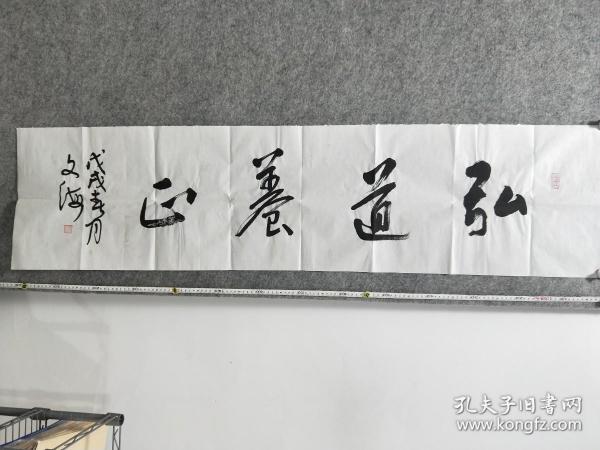 弘道養正
戊戌春月
文海
孔夫子旧书网
www.kongfz.com